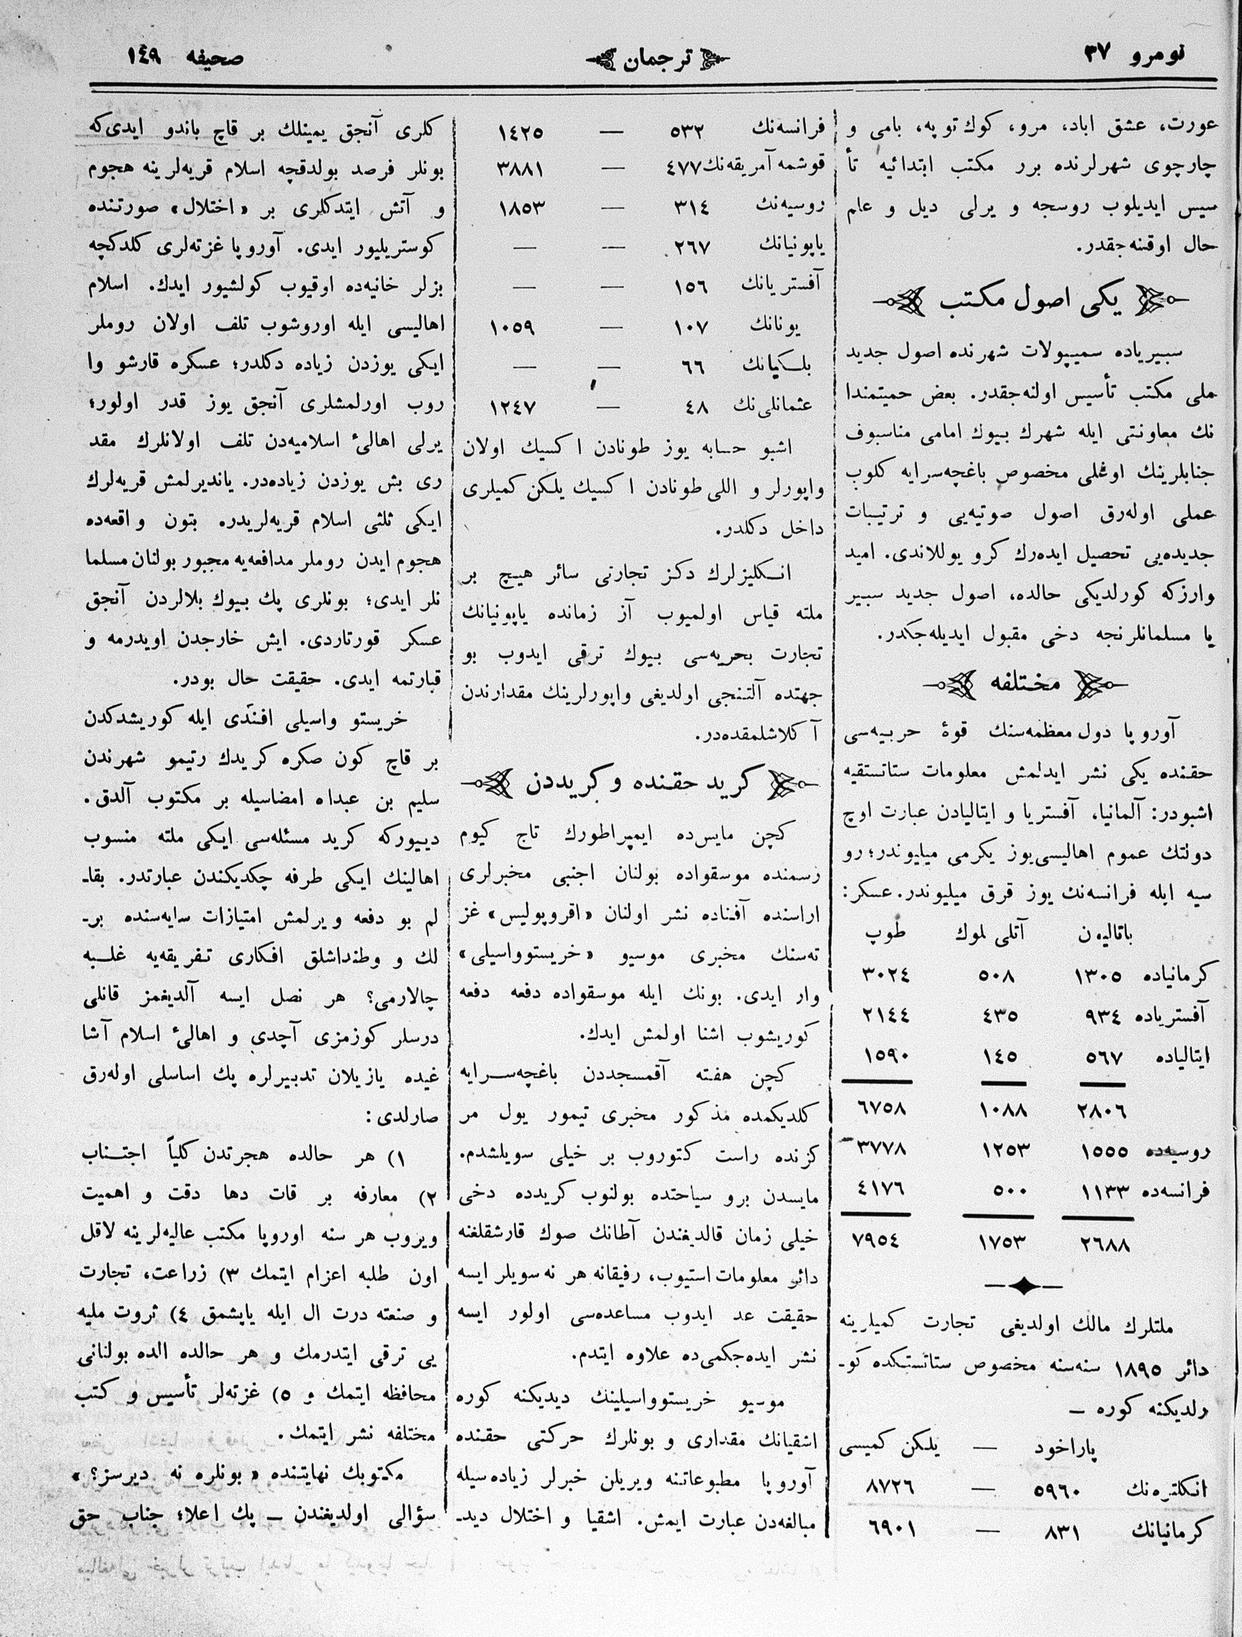 نومرو ٣٧
ترجمان
صحيفه ١٤٩
عورت، عشق اباد، مرو، كوك توپه، بامى و
چارجوى شهرلرنده برر مكتب ابتدائيه تأ
سيس ايديلوب روسجه و يرلى ديل و علم
حال اوقنه‌جقدر.
يكى اصول مكتب
سبيرياده سميپولات شهرنده اصول جديد
ملى مكتب تأسيس اولنه‌جقدر. بعض حميتمندا
نك معاونتى ايله شهرك بيوك امامى مناسبوف
جنابلرينك اوغلى مخصوص باغچه‌سرايه كلوب
عملى اوله‌رق اصول صوتيه‌يى و ترتيبات
جديده‌يى تحصيل ايده‌رك كرو يوللاندى. اميد
وارزكه كورلديكى حالده، اصول جديد سبير
يا مسلمانلرنجه دخى مقبول ايديله‌جكدر.
مختلفه
آوروپا دول معظمه‌سنك قوۀ حربيه‌سى
حقنده يكى نشر ايدلمش معلومات ستاتستقيه
اشبودر: آلمانيا، آفستريا و ايتاليادن عبارت اوچ
دولتك عموم اهاليسى‌يوز يكرمى ميليوندر؛ رو
سيه ايله فرانسه‌نك يوز قرق ميليوندر. عسكر:
باتاليون آتلى بلوك طوپ
كرمانياده ١٣٠٥ ٥٠٨ ٣٠٢٤
آفسترياده ٩٣٤ ٤٣٥ ٢١٤٤
ايتالياده ٥٦٧ ١٤٥ ١٥٩٠
٢٨٠٦ ١٠٨٨ ٦٧٥٨
روسيه‌ده ١٥٥٥ ١٢٥٣ ٣٧٧٨
فرانسه‌ده ١١٣٣ ٥٠٠ ٤١٧٦
٢٦٨٨ ١٧٥٣ ٧٩٥٤
ملتلرك مالك اولديغى تجارت كميلرينه
دائر ١٨٩٥ سنه‌سنه مخصوص ستاتستكده كو-
رلديكنه كوره —
پاراخود — يلكن كميسى
انكلتره‌نك ٥٩٦٠ — ٨٧٢٦
كرمانيانك ٨٣١ — ٦٩٠١
فرانسه‌نك ٥٣٢ — ١٤٢٥
قوشمه آمريقه‌نك ٤٧٧ — ٣٨٨١
روسيه‌نك ٣١٤ — ١٨٥٣
ياپونيانك ٢٦٧ — —
آفستريانك ١٥٦ — —
يونانك ١٠٧ — ١٠٥٩
بلكيانك ٦٦ — —
عثمانلى‌نك ٤٨ — ١٢٤٧
اشبو حسابه يوز طونادن اكسيك اولان
واپورلر و اللى طونادن اكسيك يلكن كميلرى
داخل دكلدر.
انكليزلرك دكز تجارتى سائر هيچ بر
ملته قياس اولميوب آز زمانده ياپونيانك
تجارت بحريه‌سى بيوك ترقى ايدوب بو
جهتده آلتنجى اولديغى واپورلرينك مقدارندن
آكلاشلمقده‌در.
كريد حقنده و كريددن
كچن مايس‌ده ايمپراطورك تاج كيوم
رسمنده موسقواده بولنان اجنبى مخبرلرى
اراسنده آفناده نشر اولنان «اقروپوليس» غز
ته‌سنك مخبرى موسيو «خريستوواسيلى»
وار ايدى. بونك ايله موسقواده دفعه دفعه
كوريشوب اشنا اولمش ايدك.
كچن هفته آقمسجددن باغچه‌سرايه
كلديكمده مذكور مخبرى تيمور يول مر
كزنده راست كتوروب بر خيلى سويلشدم.
مايسدن برو سياحتده بولنوب كريدده دخى
خيلى زمان قالديغندن آطانك صوك قارشقلغنه
دائر معلومات استيوب، رفيقانه هر نه سويلر ايسه
حقيقت عد ايدوب مساعده‌سى اولور ايسه
نشر ايده‌جكمى‌ده علاوه ايتدم.
موسيو خريستوواسيلينك ديديكنه كوره
اشقيانك مقدارى و بونلرك حركتى حقنده
آوروپا مطبوعاتنه ويريلن خبرلر زياده‌سيله
مبالغه‌دن عبارت ايمش. اشقيا و اختلال ديد-
كلرى آنجق يميتلك بر قاچ باندو ايدى‌كه
بونلر فرصد بولدقچه اسلام قريه‌لرينه هجوم
و آتش ايتدكلرى بر «اختلال» صورتنده
كوستريليور ايدى. آوروپا غزته‌لرى كلدكچه
بزلر خانيه‌ده اوقيوب كولشيور ايدك. اسلام
اهاليسى ايله اوروشوب تلف اولان روملر
ايكى يوزدن زياده دكلدر؛ عسكره قارشو وا
روب اورلمشلرى آنجق يوز قدر اولور؛
يرلى اهالئ اسلاميه‌دن تلف اولانلرك مقد
رى بش يوزدن زياده‌در. يانديرلمش قريه‌لرك
ايكى ثلثى اسلام قريه‌لريدره بتون واقعه‌ده
هجوم ايدن روملر مدافعه‌يه مجبور بولنان مسلما
نلر ايدى؛ بونلرى پك بيوك بلالردن آنجق
عسكر قورتاردى. ايش خارجدن اويدرمه و
قبارتمه ايدى. حقيقت حال بودر.
خريستو واسيلى افندى ايله كوريشدكدن
بر قاچ كون صكره كريدك رتيمو شهرندن
سليم بن عبداه امضاسيله بر مكتوب آلدق.
دييوركه كريد مسئله‌سى ايكى ملته منسوب
اهالينك ايكى طرفه چكديكندن عبارتدر. بقا-
لم بو دفعه ويرلمش امتيازات سايه‌سنده بر-
لك و وطنداشلق افكارى تفريقه‌يه غلبه
چالارمى؟ هر نصل ايسه آلديغمز قانلى
درسلر كوزمزى آچدى و اهالئ اسلام آشا
غيده يازيلان تدبيرلره پك اساسلى اوله‌رق
صارلدى:
١) هر حالده هجرتدن كلياً اجتناب
٢) معارفه بر قات دها دقت و اهميت
ويروب هر سنه اوروپا مكتب عاليه‌لرينه لاقل
اون طلبه اعزام ايتمك ٣) زراعت، تجارت
و صنعته درت ال ايله ياپشمق ٤) ثروت مليه
يى ترقى ايتدرمك و هر حالده الده بولنانى
محافظه ايتمك و ٥) غزته‌لر تأسيس و كتب
مختلفه نشر ايتمك.
مكتوبك نهايتنده «بونلره نه ديرسز؟»
سؤالى اولديغندن — پك اعلا؛ جناب حق